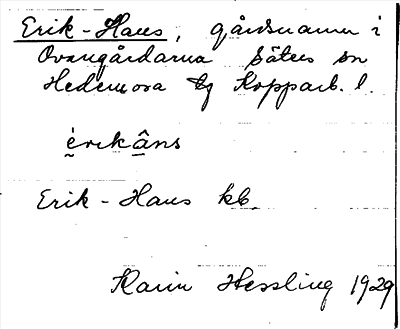 Erik-Hans, gårdsnamn i
Ovangårdarna Säters sn
Hedemora tg Kopparb. l.
èrikâns
Erik-Hans kb.
Karin Hessling 1929